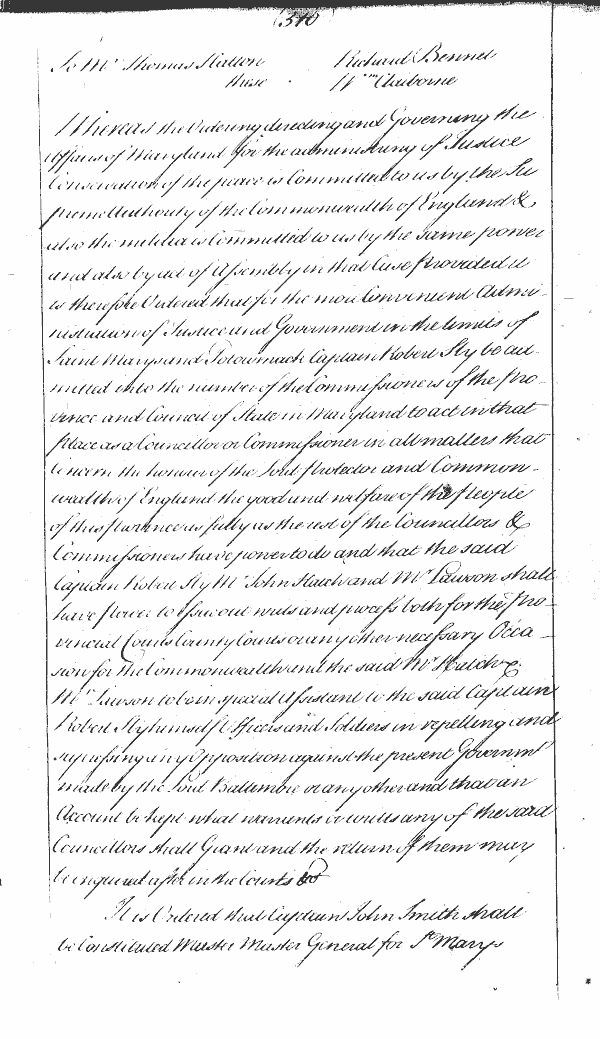 (310)
To Mr Thomas Hatton Richard Bennet
these . Wm Claiborne
Whereas the Ordering directing and Governing the
Affairs of Maryland for the administring of Justice
Conservation of the peace is Committed to us by the Su
preme Authority of the Commonwealth of England &
also the militia is Committed to us by the same power
and also by act of Assembly in that Case Provided it
is therefore Ordered that for the more Convenient Admi-
nistration of Justice and Government in the limits of
Saint Marys and Potowmack Captain Robert Sly be ad-
mitted into the number of the Commissioners of the Pro-
vince and Council of State in Maryland to act in that
Place as a Councillor or Commissioner in all matters that
Concern the honour of the Lord Protector and Common-
wealth of England the good and welfare of the People
of this Province as fully as the rest of the Councillors &
Commissioners have power to do and that the said
Captain Robert Sly Mr John Hatch and Mr Lawson shall
have Power to Issue out writs and process both for the Pro-
vincial Courts County Courts or any other necessary Occa-
sion for the Commonwealth and the said Mr Hatch &
Mr Lawson to be in special Assistant to the said Captain
Robert Sly himself Officers and Soldiers in repelling and
supressing any Opposition against the present Governmt
made by the Lord Baltimore or any other and that an
Account be kept what warrants or writs any of the said
Councillors shall Grant and the return of them may
be inquired after in the Courts
It is Ordered that Captain John Smith shall
be Constituted Muster Master General for St Marys